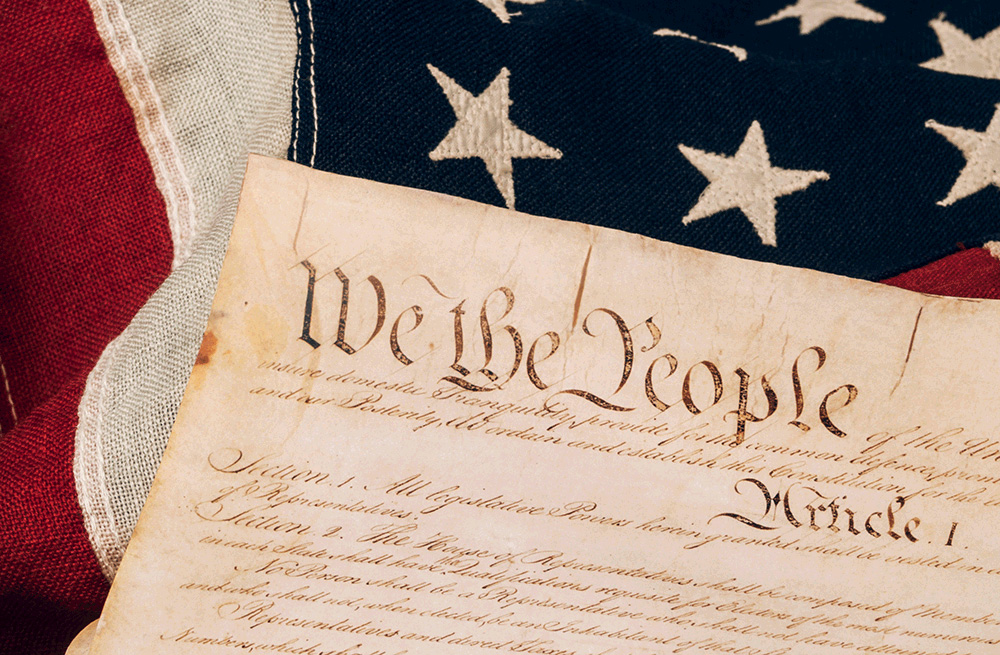 We the People
of the Un
insure domestic Tranquility, provide for the common defence, promo
and our Posterity, do ordain and establish this Constitution for the
Article. I.
Section. 1. All legislative Powers herein granted shall be vested in a
of Representatives.
Section. 2. The House of Representatives shall be composed of Membe
in each State shall have the Qualifications requisite for Electors of the most numerous
No Person shall be a Representative who shall not have attained
and who shall not, when elected, be an Inhabitant of that S
Representatives and direct Taxes
Numbers, which shall